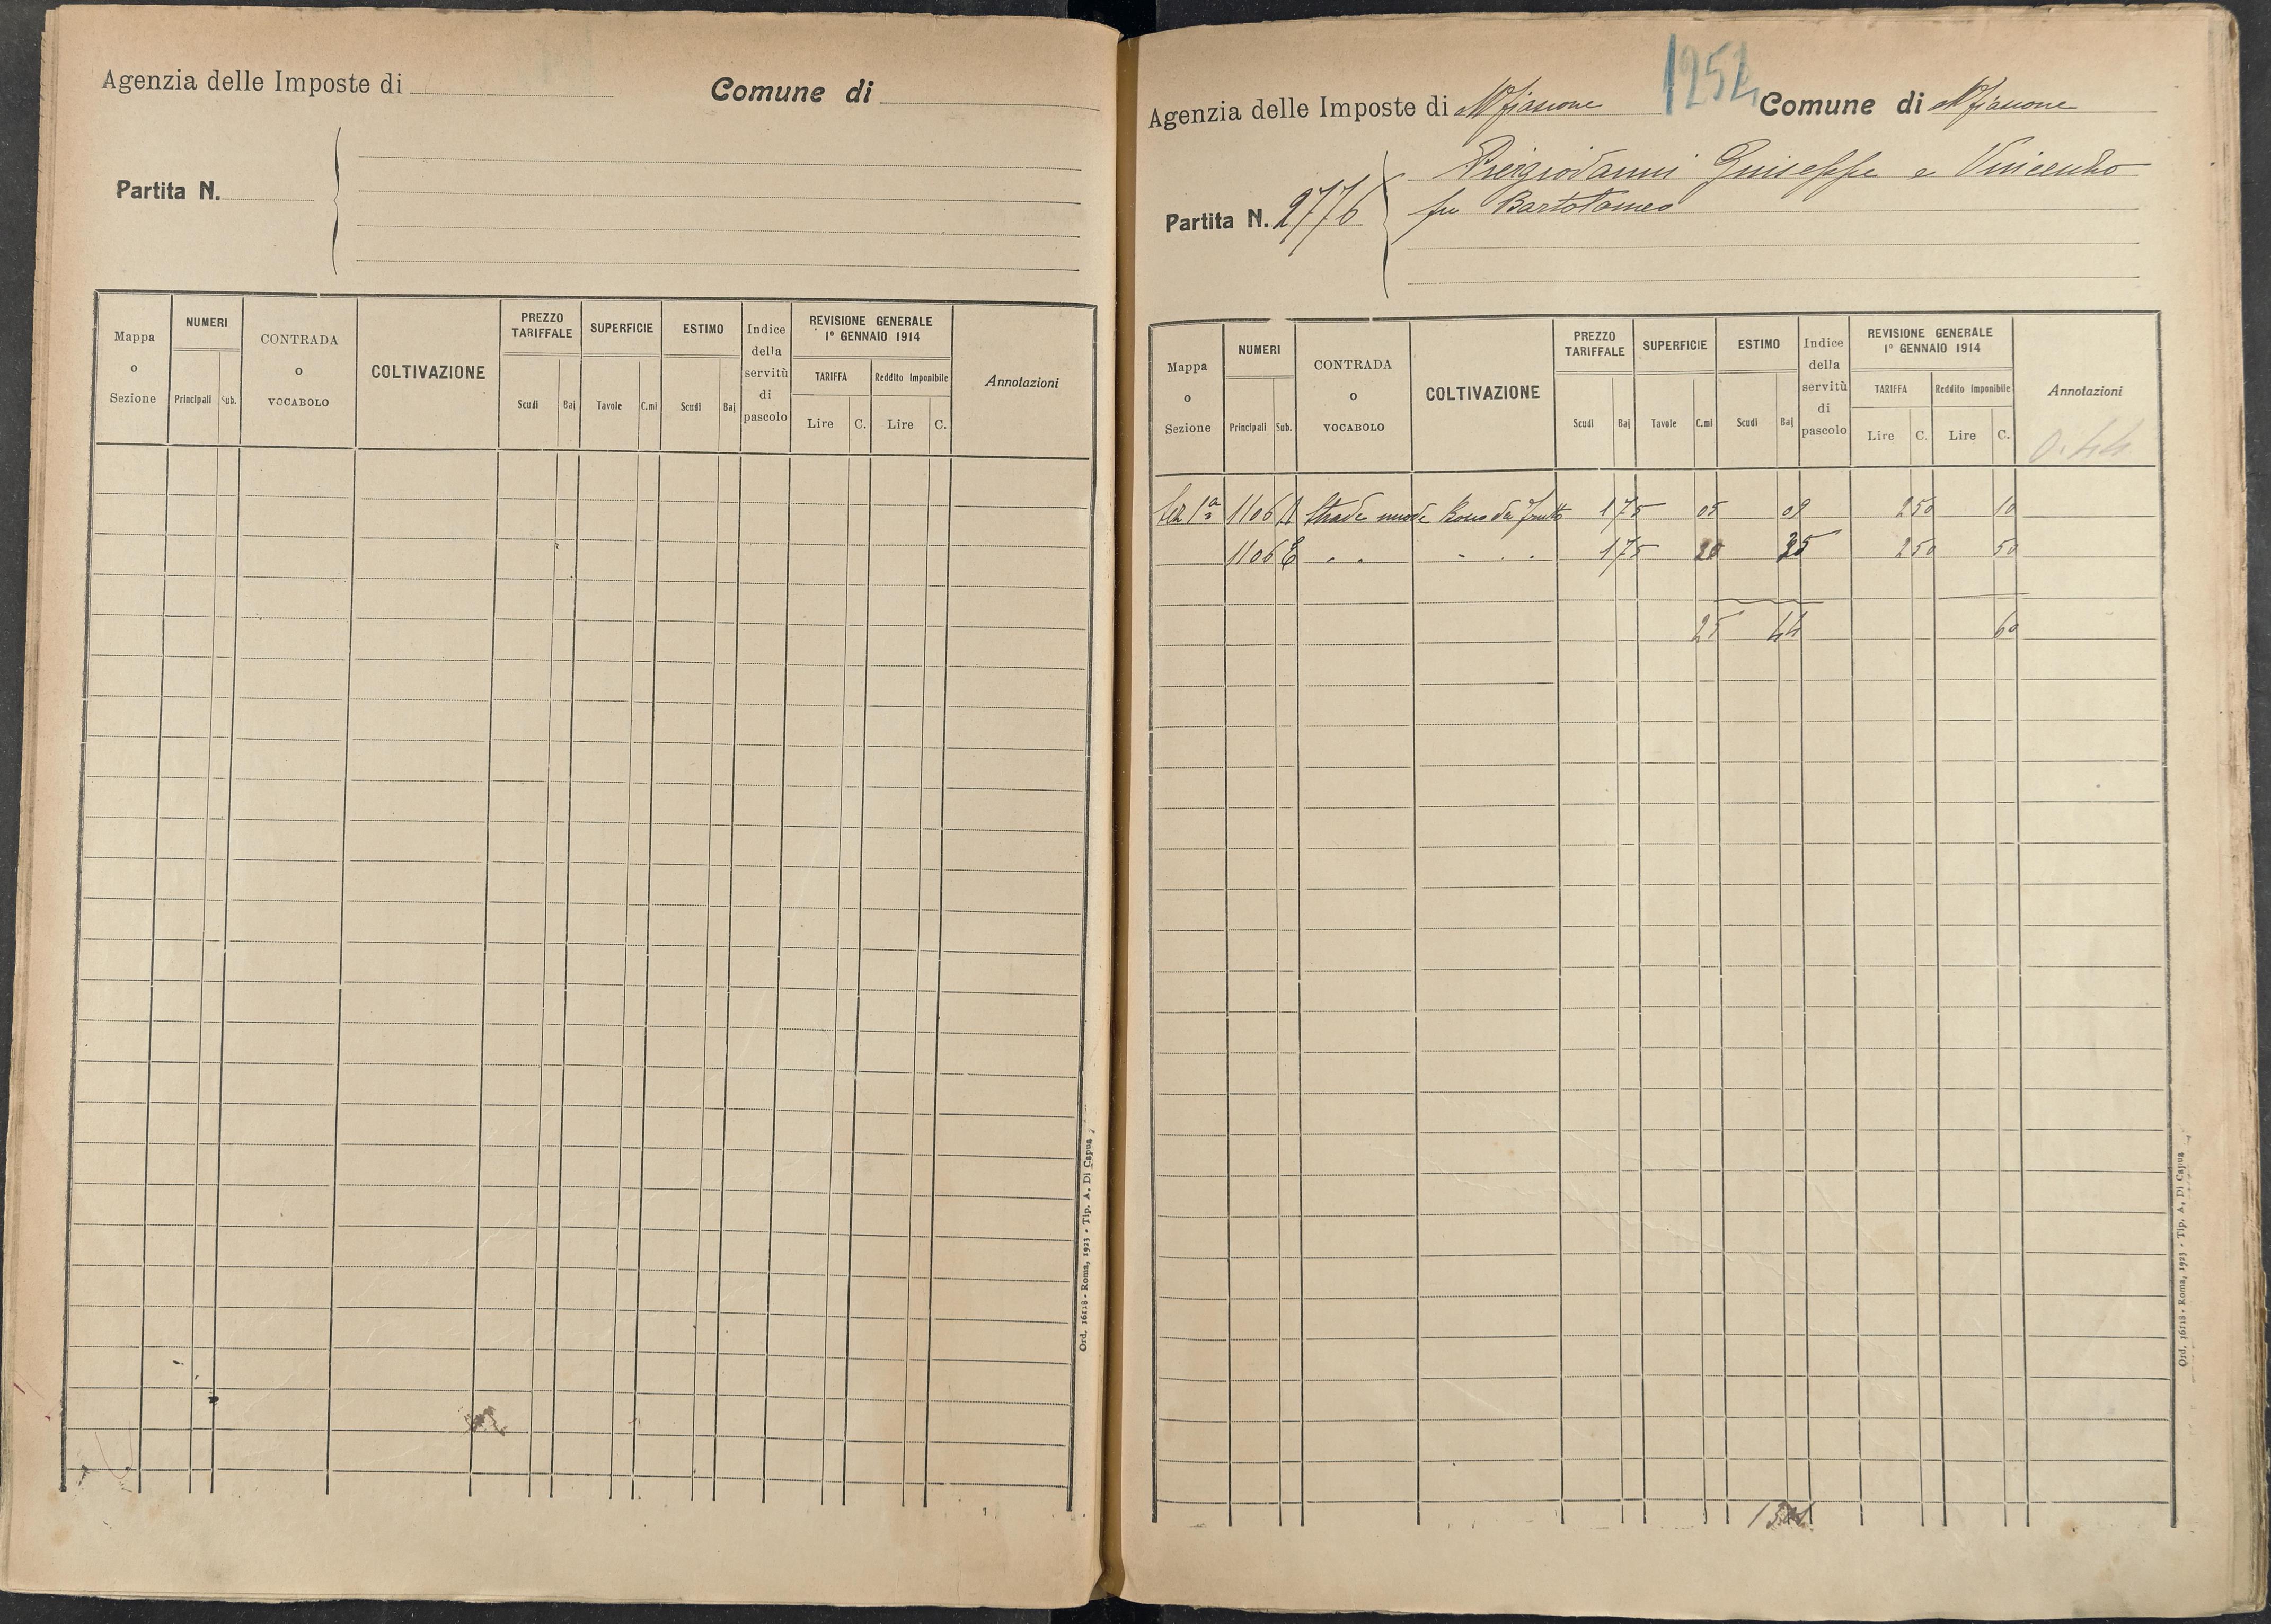 Agenzia delle Imposte di
Comune di
Partita N.
Mappa o Sezione
NUMERI
Principali
Sub.
CONTRADA o VOCABOLO
COLTIVAZIONE
PREZZO TARIFFALE
Scudi
Baj
SUPERFICIE
Tavole
C.mi
ESTIMO
Scudi
Baj
Indice della servitù di pascolo
REVISIONE GENERALE
1° GENNAIO 1914
TARIFFA
Reddito Imponibile
Lire
C.
Lire
C.
Annotazioni
Ord. 16118 - Roma, 1923 - Tip. A. Di Capua
1252
Agenzia delle Imposte di Mfiascone
Comune di Mfiascone
Partita N. 2776
Piergiovanni Giuseppe e Vincenzo
fu Bartolomeo
Mappa o Sezione
NUMERI
Principali
Sub.
CONTRADA o VOCABOLO
COLTIVAZIONE
PREZZO TARIFFALE
Scudi
Baj
SUPERFICIE
Tavole
C.mi
ESTIMO
Scudi
Baj
Indice della servitù di pascolo
REVISIONE GENERALE
1° GENNAIO 1914
TARIFFA
Reddito Imponibile
Lire
C.
Lire
C.
Annotazioni
0.44
Sez 1ª 1106 Strade nuode da frutto 175 05 09 250 10
1106 175 20 35 250 50
25 44 60
Ord. 16118 - Roma, 1923 - Tip. A. Di Capua